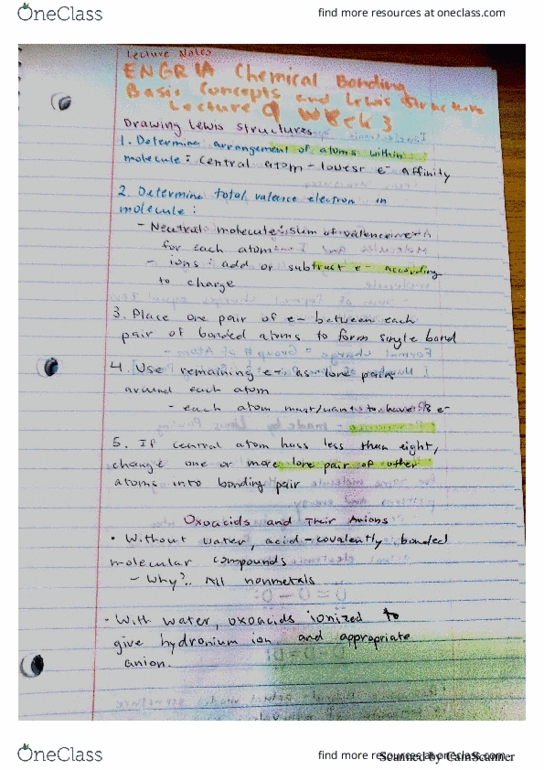 OneClass
find more resources at oneclass.com
Lecture Notes
ENGR 1A Chemical Bonding
Basic Concepts and Lewis Structure
Lecture 9 Week 3
Drawing Lewis Structures
1. Determine arrangement of atoms within
molecule: Central atom - lowest e- affinity
2. Determine total valence electron in
molecule:
- Neutral molecule: sum of valence e-
for each atom
- ions: add or subtract e- according
to charge
3. Place one pair of e- between each
pair of bonded atoms to form single bond
4. Use remaining e- as lone pairs
around each atom
- each atom must/wants to have 8 e-
5. If central atom hass less than eight,
change one or more lone pair of other
atoms into bonding pair
Oxoacids and Their Anions
• Without water, acid - covalently bonded
molecular compounds
- Why?.. All nonmetals
- With water, oxoacids ionized to
give hydronium ion and appropriate
anion.
OneClass
find more resources at oneclass.com
Scanned by CamScanner